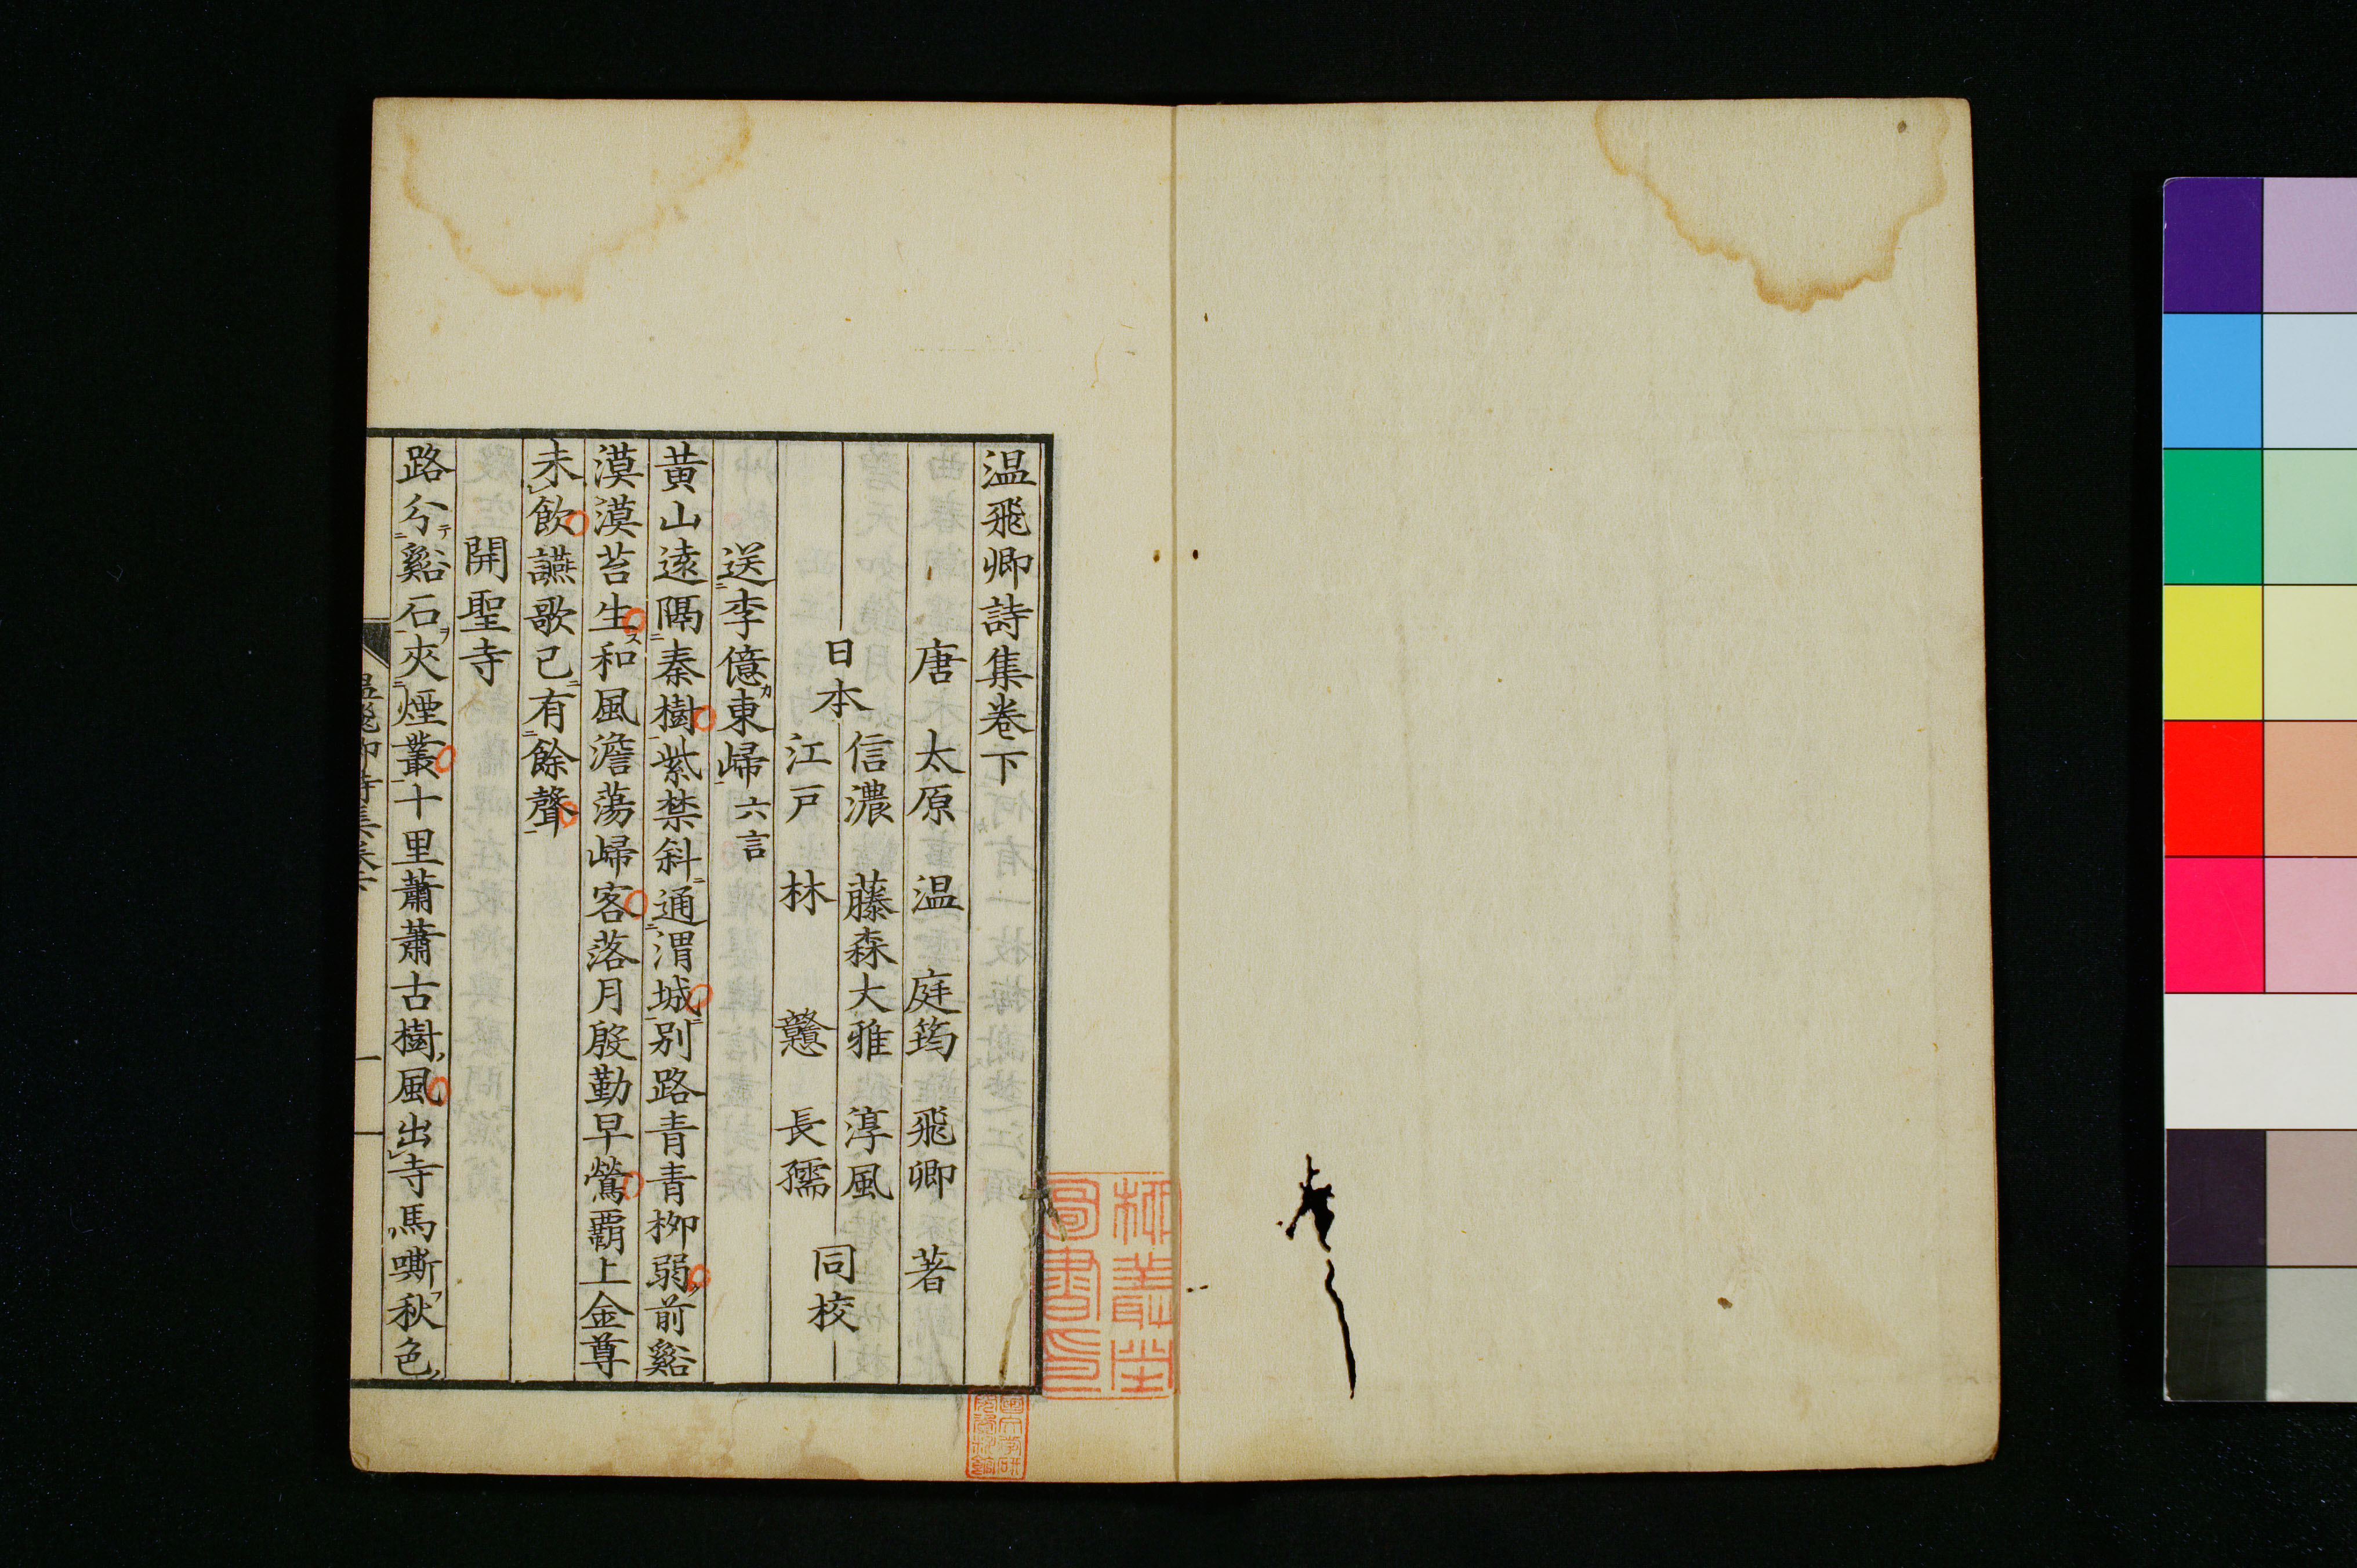 温飛卿詩集卷下
唐　太原　温　庭筠　飛卿　著
日本　信濃　藤森大雅　淳風　同校
江戸　林　戇　長孺
送李億東歸　六言
黃山遠隔秦樹紫禁斜通渭城別路青青柳弱前谿
漠漠苔生和風澹蕩歸客落月殷勤早鶯覇上金尊
未飲讌歌已有餘聲
開聖寺
路分谿石夾煙叢十里蕭蕭古樹風出寺馬嘶秋色
温飛卿詩集卷下
一